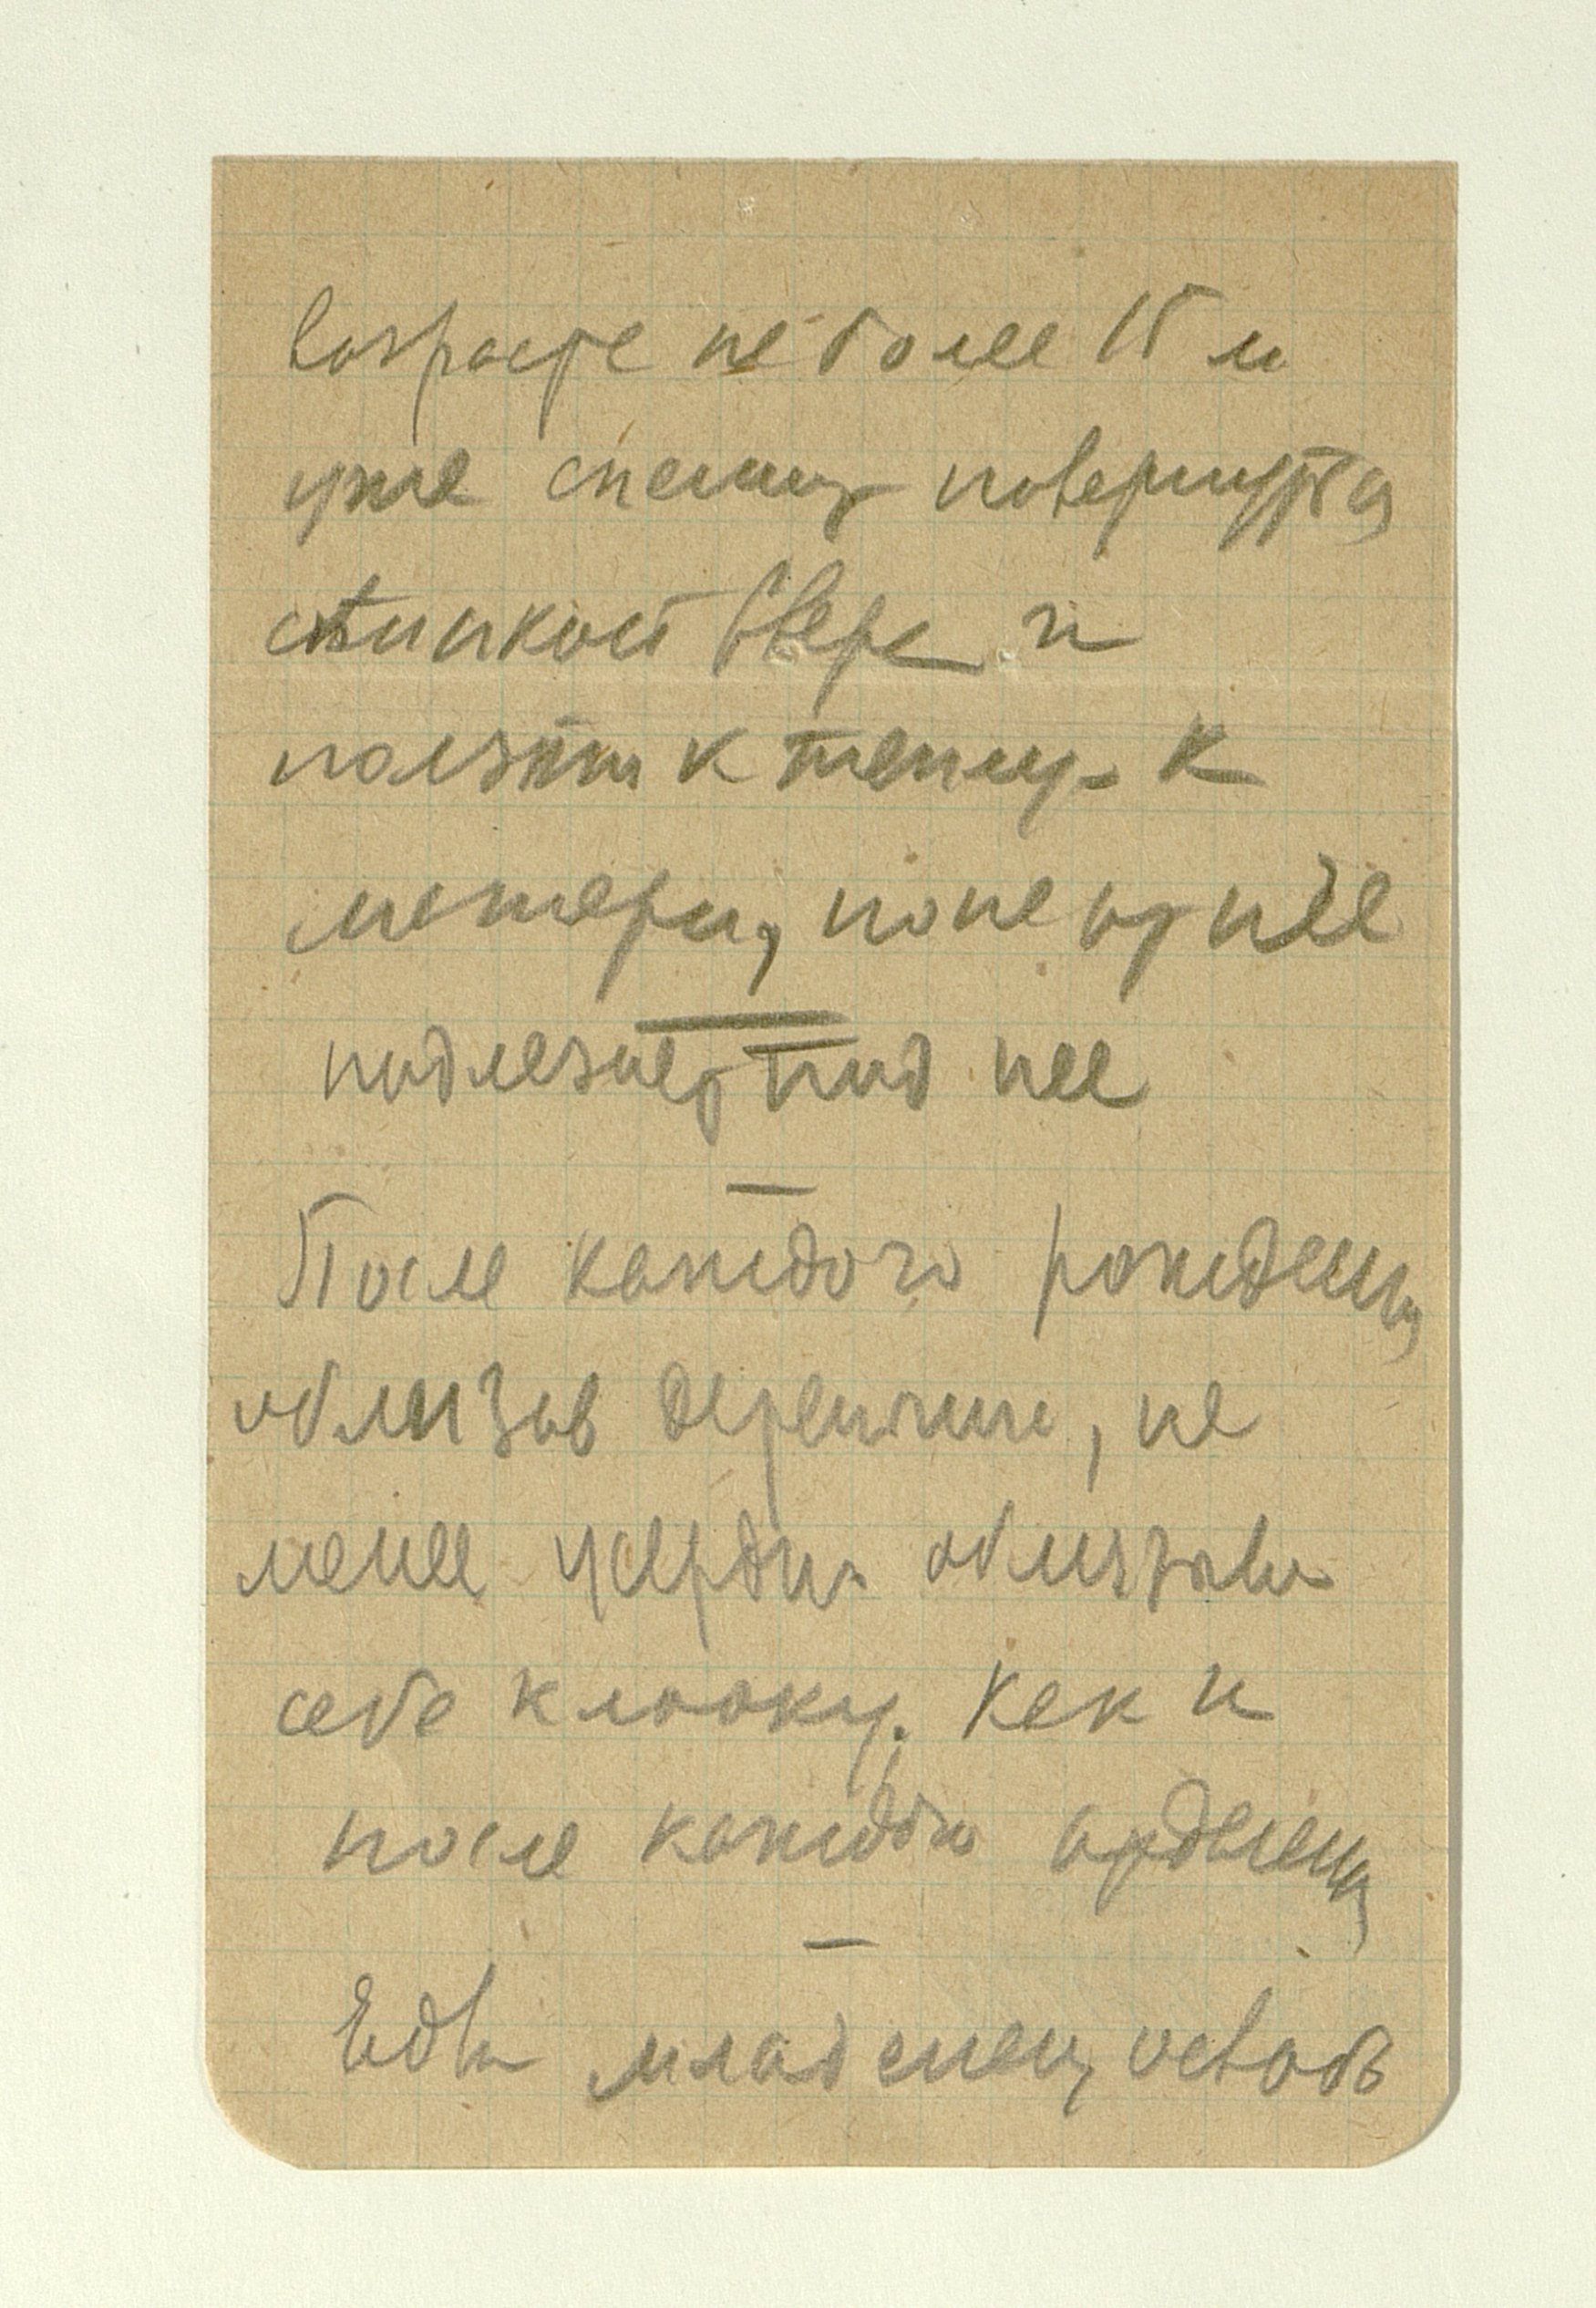 возрасте не более 15 м
уже спешит повернуться
спинкой вверх и
ползти к теплу к
матери, но не от нее
под нее
После каждого рождения
облизав детеныша, не
менее усердно облизывает
себе клоаку. Как и
после каждого отделения
Едва младенец освобо